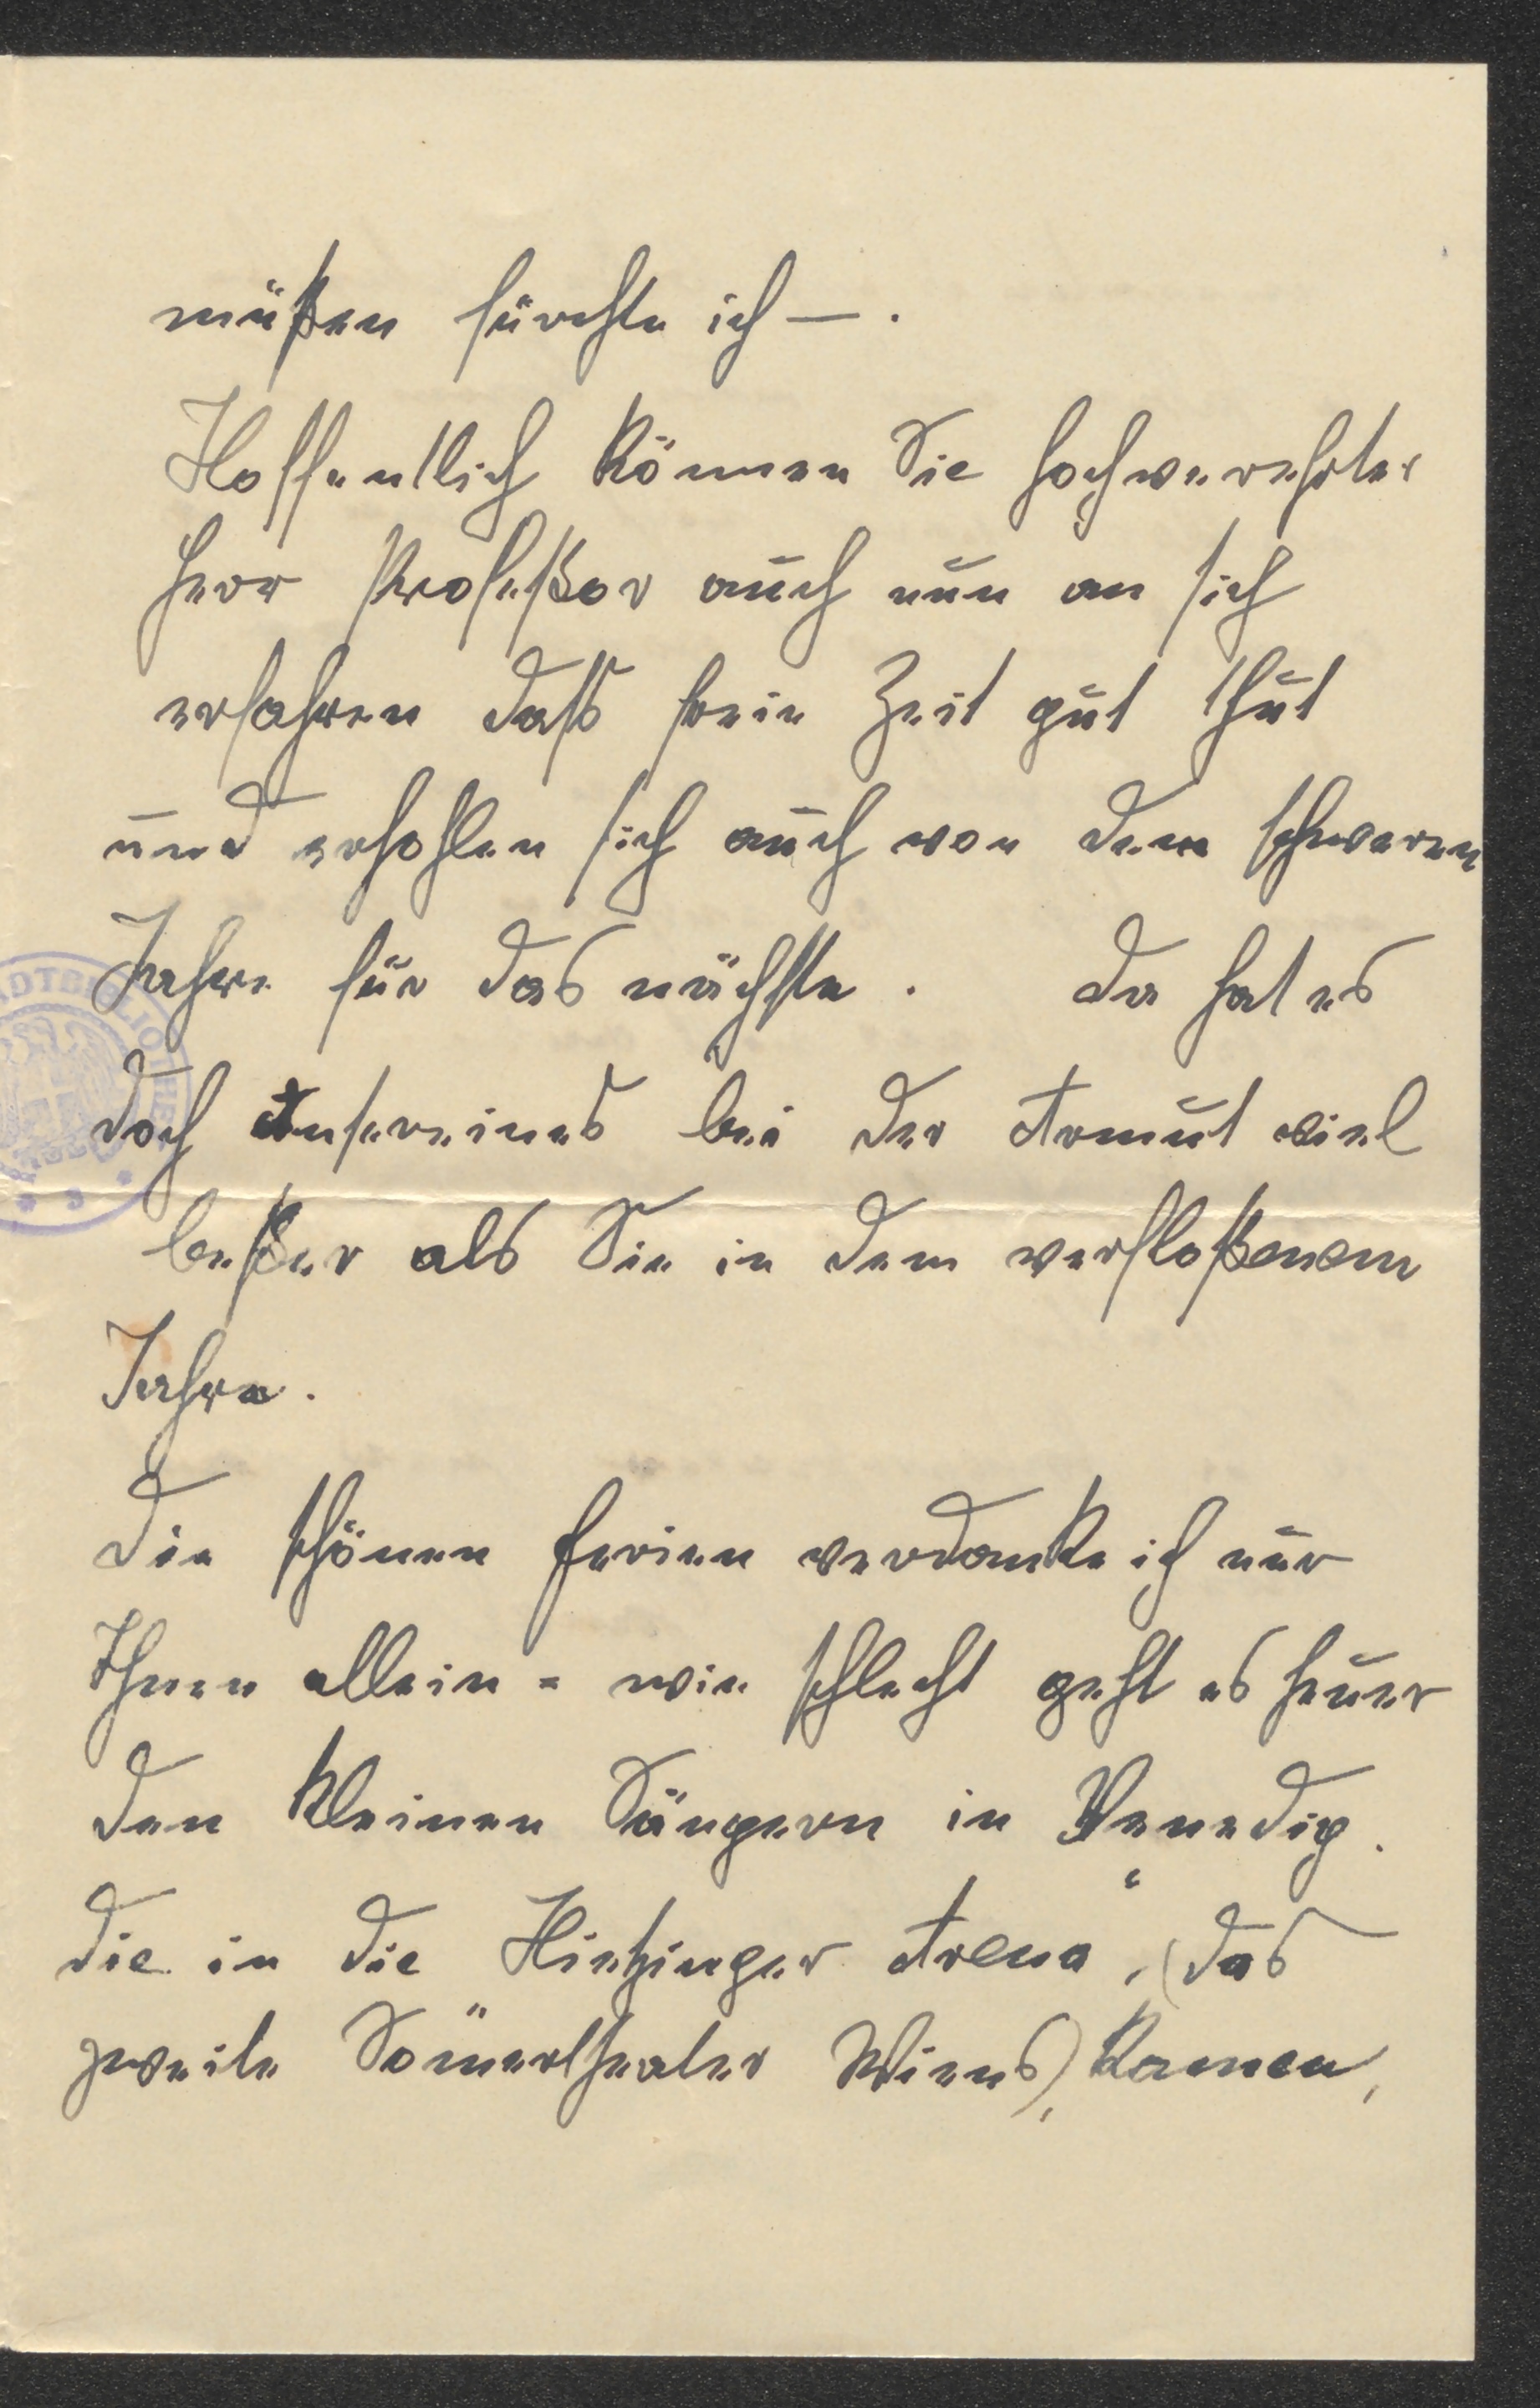 müßen fürchte ich —.
Hoffentlich können Sie hochverehrter
Herr Profeßor auch nun an sich
erfahren dass freie Zeit gut thut
und erhohlen sich auch von dem schweren
Jahre für das nächste. Da hat es
doch unsereines bei der Armut viel
beßer als Sie in dem verfloßenem
Jahre.
Die schönen Ferien verdanke ich nur
Ihnen allein = wie schlecht geht es heuer
den kleinen Sängern in Venedig.
die in die Hietzinger Arena", (das
zweite Som̅ertheater Wiens), kamen,